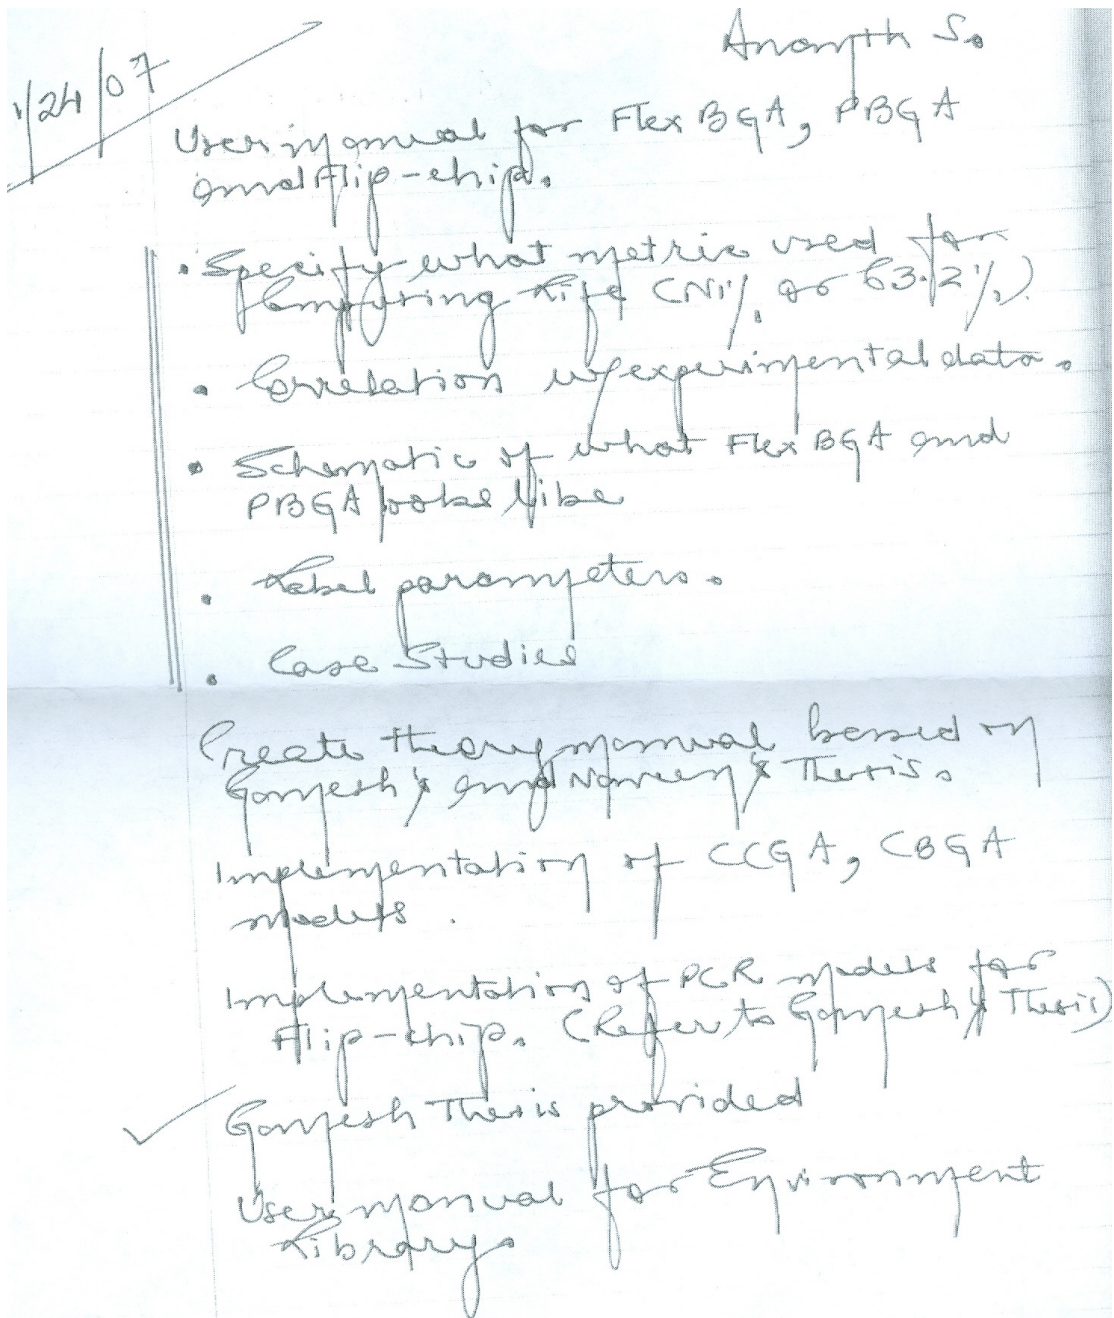 1/24/07
Ananth S.
User manual for Flex BGA, PBGA
and Flip-chip.
• Specify what metric used for
Computing Life (N1% or 63.2%)
• Correlation w/ experimental data.
• Schematic of what Flex BGA and
PBGA looks like
• Label parameters.
• Case Studies
Create theory manual based on
Ganesh's and Naveen's Thesis.
Implementation of CCGA, CBGA
models.
Implementation of PCR models for
Flip-chip. (Refer to Ganesh's Thesis)
✓ Ganesh Thesis provided
User manual for Environment
Library.